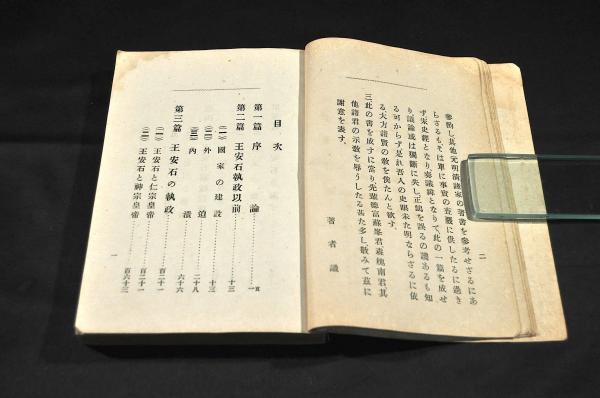 二
參酌し其他元明清諸家の著書を參考せざるにあ
らざるも、そは單に事實の査覈に供したるに過き
ず宋史經となり奏議緯となりて、此の一篇を成せ
り議論或は獨斷に失し正鵠を誤るの譏あるも知
る可からず是れ吾人の史眼未た明ならさるに依
る大方諸賢の敎を俟たんと欲す、
三此の書を成すに當り先輩德富蘇峯君森槐南君其
他諸君の示敎を辱うしたる甚た多し敢みて玆に
謝意を表す、
著者識
目次
第一篇 序論 一
第二篇 王安石執政以前 十三
(一) 國家の建設 十三
(二) 外 二十八
(三) 內 六十六
第三篇 王安石の執政 百二十一
(一) 王安石と仁宗皇帝 百二十一
(二) 王安石と神宗皇帝 百六十三
一